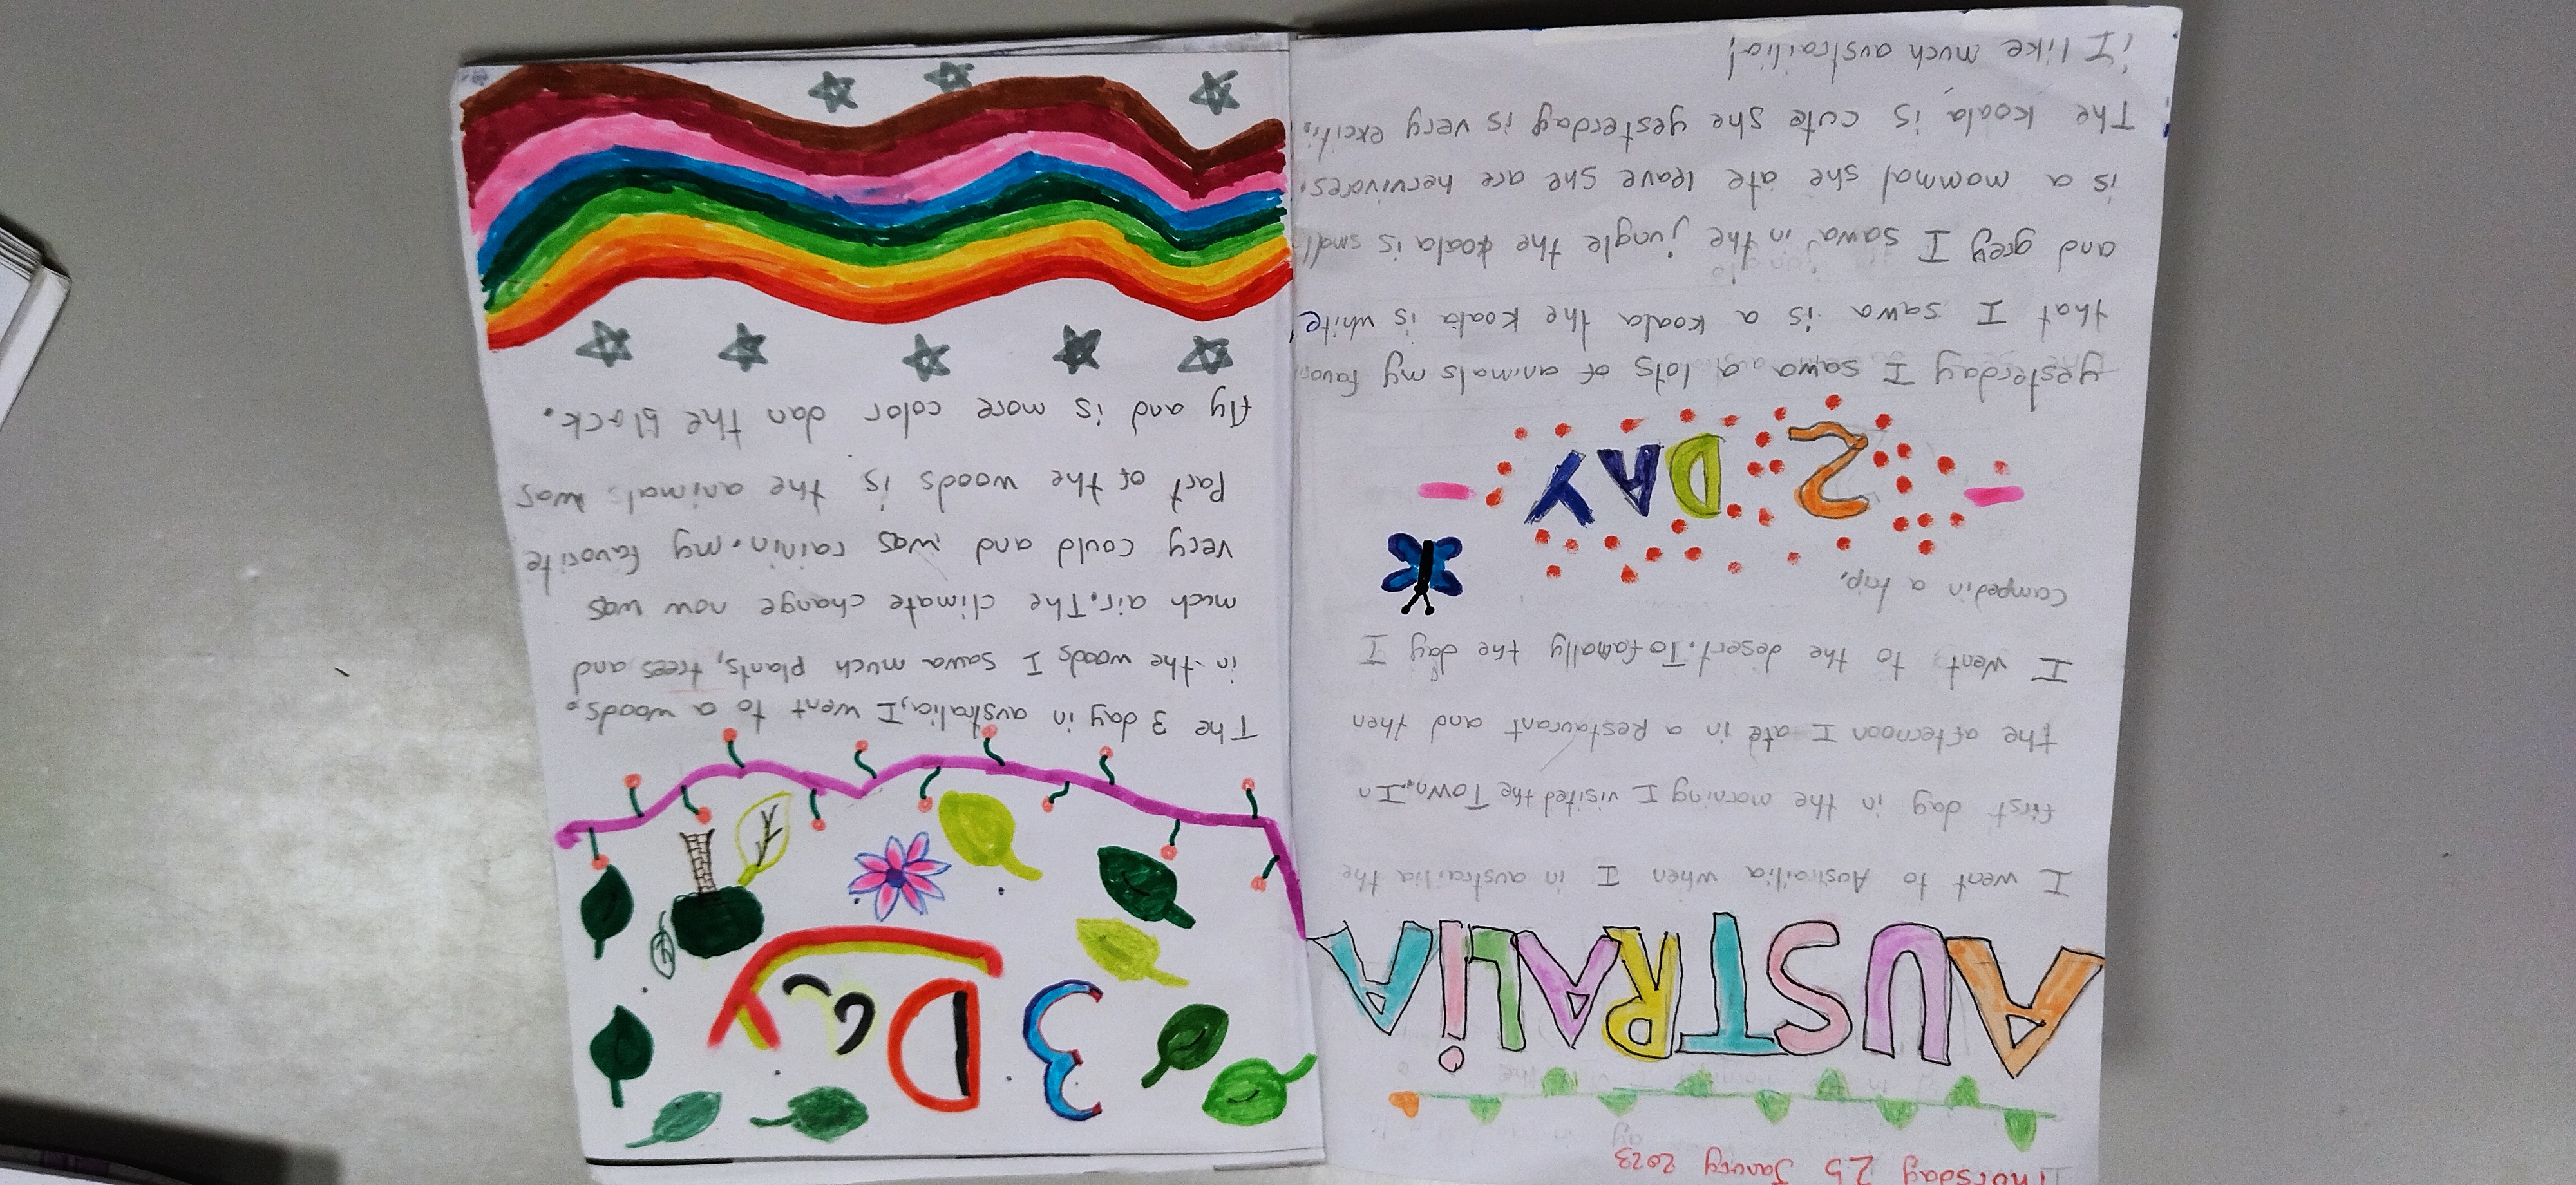 Thorsday 25 Janury 2023
AUSTRALiA
I went to Austrailia when I in austrailia the
first day in the morning I visited the Town. In
the afternoon I ate in a Restaurant and then
I went to the desert. To famally the day I
camped in a trip.
2 DAY
yesterday I sawa a lots of animals my favori
that I sawa is a koala the koala is white
and grey I sawa in the jungle the koala is small
is a mommal she ate leave she are hervivores.
The koala is cute she yesterday is very exciti.
¡I like much austrailia!
3 Day
The 3 day in australia, I went to a woods.
in the woods I sawa much plants, trees and
much air. The climate change now was
very could and was rainin. my favorite
Part of the woods is the animals was
fly and is more color dan the black.